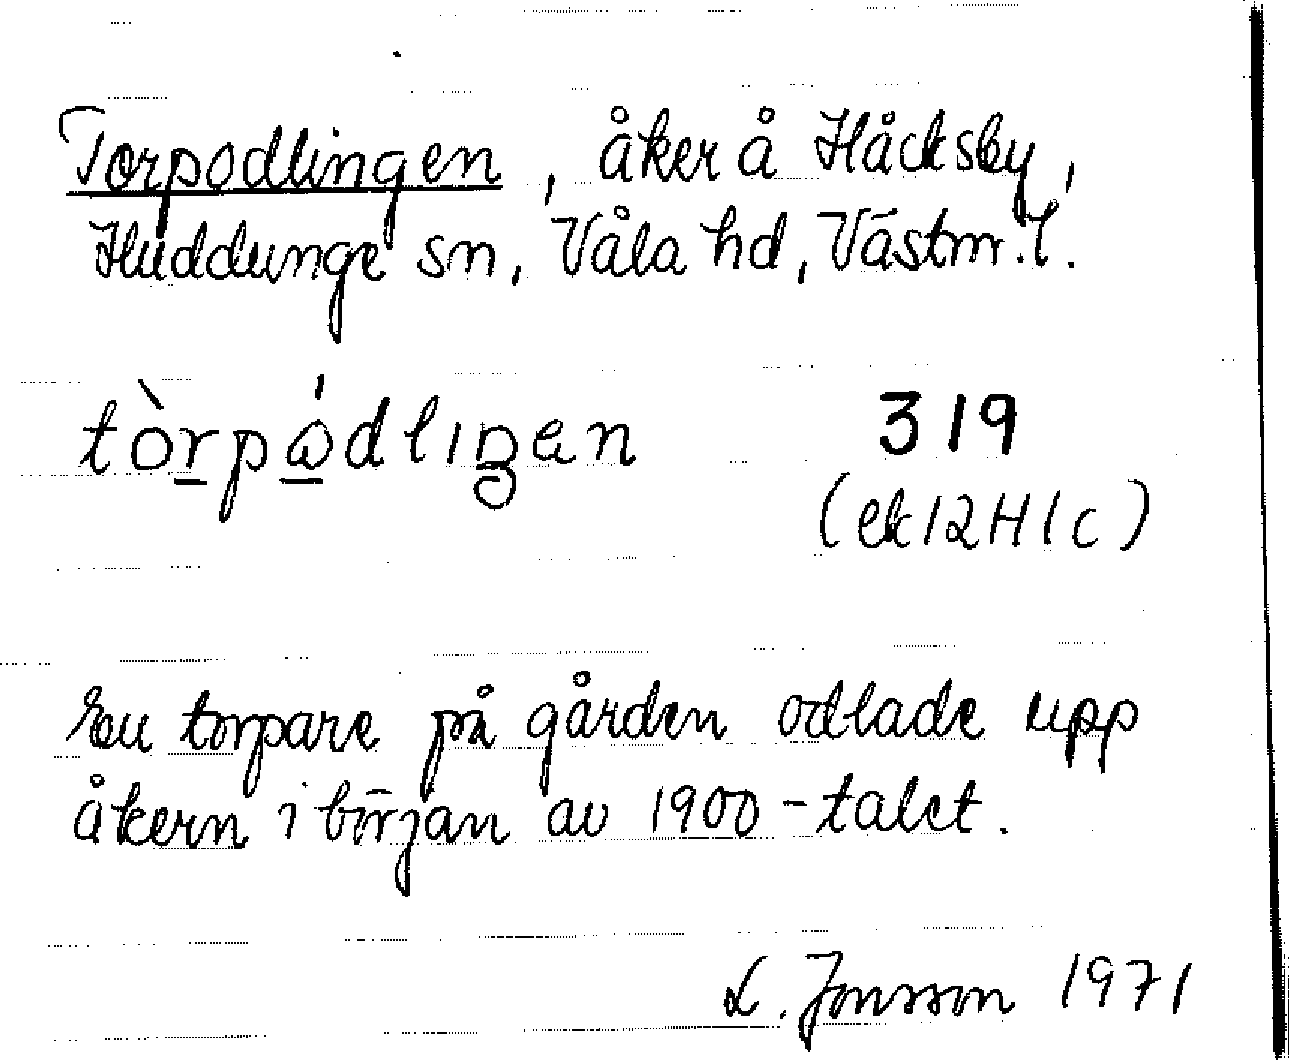 Torpodlingen, åker å Håcksby,
Huddunge sn, Våla hd, Västm. l.
tòrpódlıŋen 319
(ek 12H1c)
En torpare på gården odlade upp
åkern i början av 1900-talet.
L. Jonsson 1971